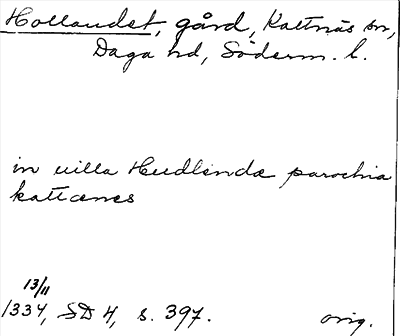 Hollandet, gård, Kattnäs sn,
Daga hd, Söderm. l.
in uilla Hudlinda parochia
katicenes
13/11
1334, SD 4, s. 397.
orig.